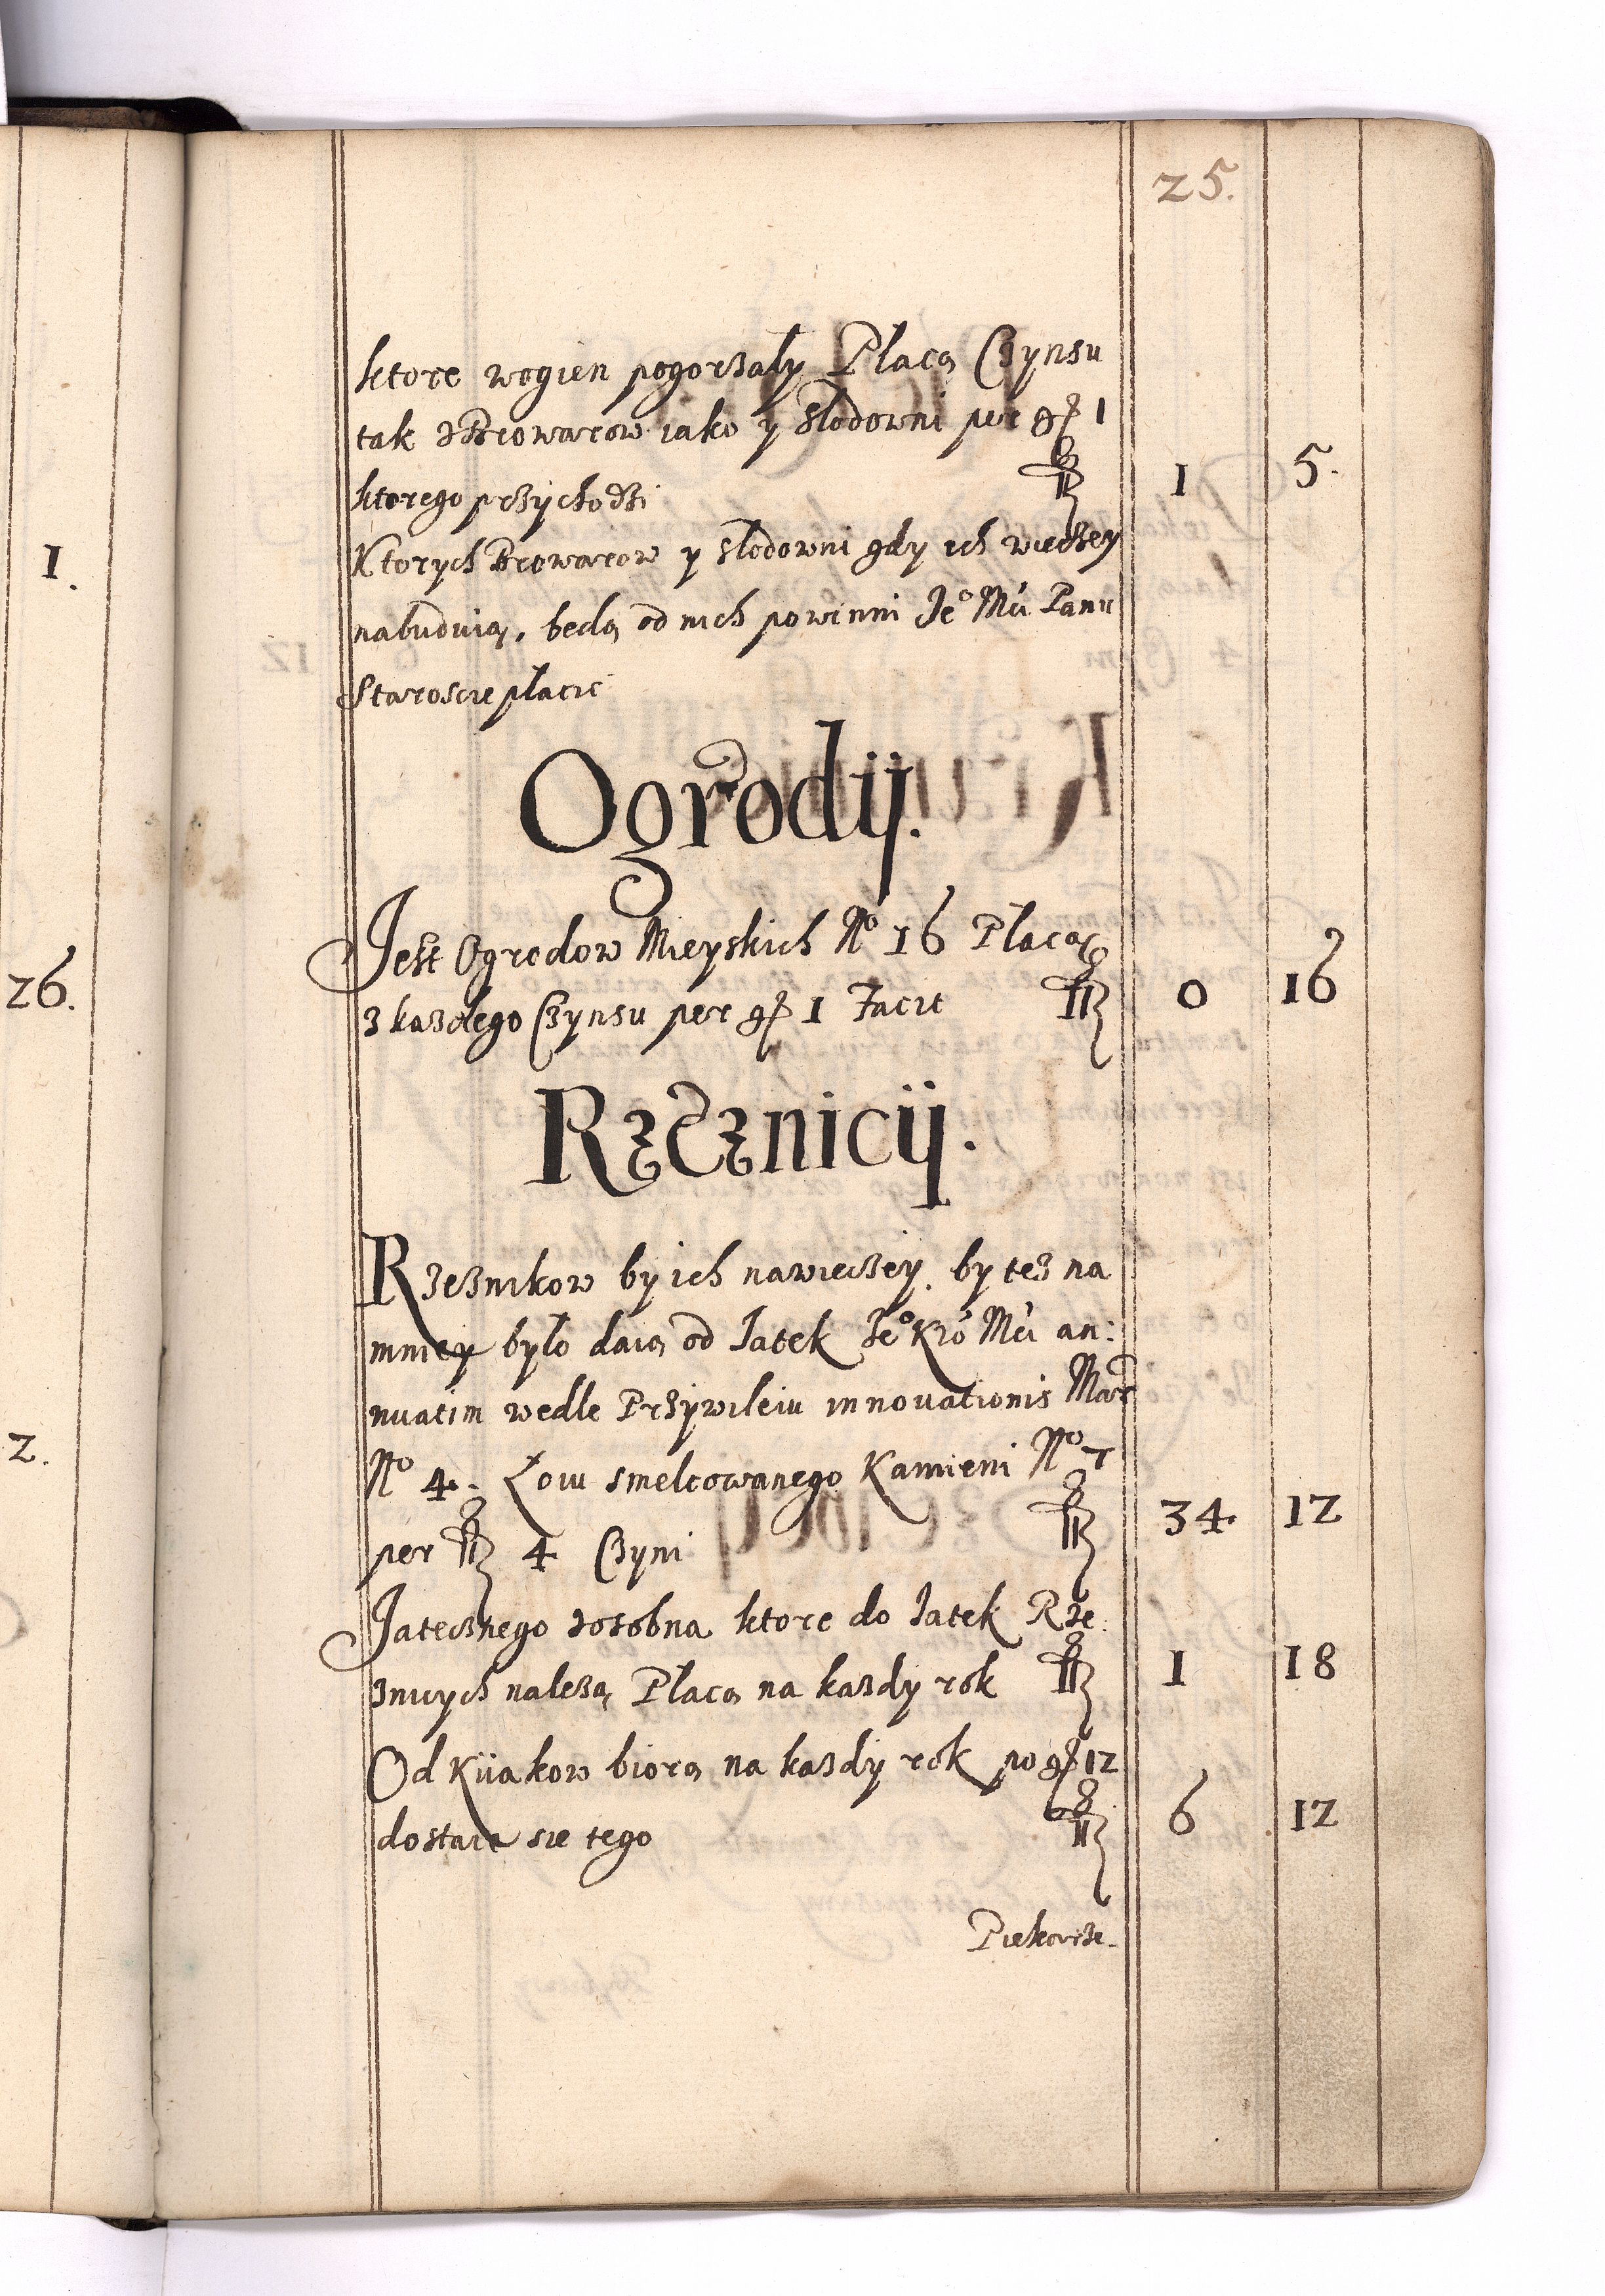 25.
ktore wogien pogorzały Płacą Czynsu
tak z Browarow iako y Słodowni per gr 1
ktorego przychodzi fl 1 5.
Ktorych Browarow y słodowni gdy ich wieczey
nabuduią, będą od nich powinni Jeº Mći Panu
Staroscie płacić
Ogrodij.
Jest Ogrodow Mieyskich Nº 16 Płacą
z kazdego Czynsu per gr 1 Facit fl 0 16
Rzeznicij.
Rzeznikow by ich nawieczey by tez na
mniey było daią od Jatek Jeº Kró Mći an:
nuatim wedle Przywileiu innovationis
Nº 4. Łoiu smelcowanego Kamieni Nº
per fl 4 Czyni fl 34. 12
Jatecznego zosobna ktore do Jatek Rze
znicych nalezą Płacą na kazdy rok fl 1 18
Od Kiiakow biorą na kazdy rok po gr 12
dostaie sie tego fl 6 12
Piekarze.
1.
26.
2.